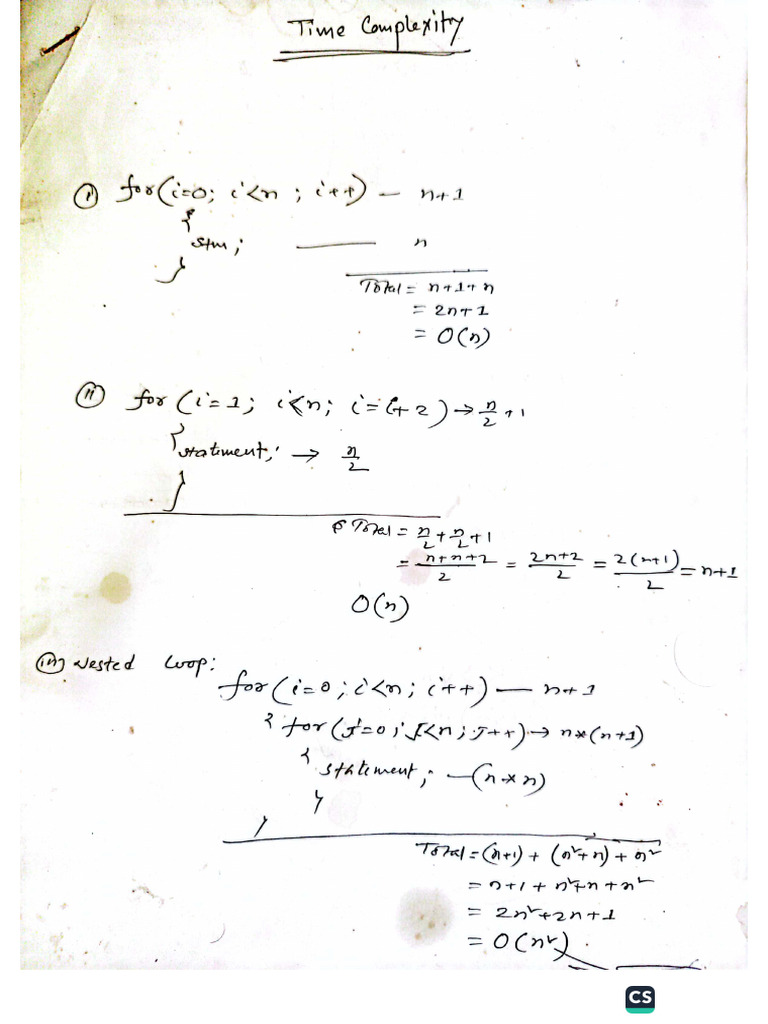 Time Complexity
(i) for(i=0; i<n ; i++) — n+1
{
stm; —— n
}
Total = n+1+n
= 2n+1
= O(n)
(ii) for (i=1; i<n; i=i+2) → n/2 +1
{
statement; → n/2
}
Total = n/2 + n/2 + 1
= (n+n+2)/2 = (2n+2)/2 = 2(n+1)/2 = n+1
O(n)
(iii) Nested Loop:
for (i=0; i<n; i++) — n+1
{ for (J=0; J<n; J++) → n*(n+1)
{
statement; — (n*n)
}
}
Total = (n+1) + (n²+n) + n²
= n+1 + n²+n+n²
= 2n²+2n+1
= O(n²).
CS